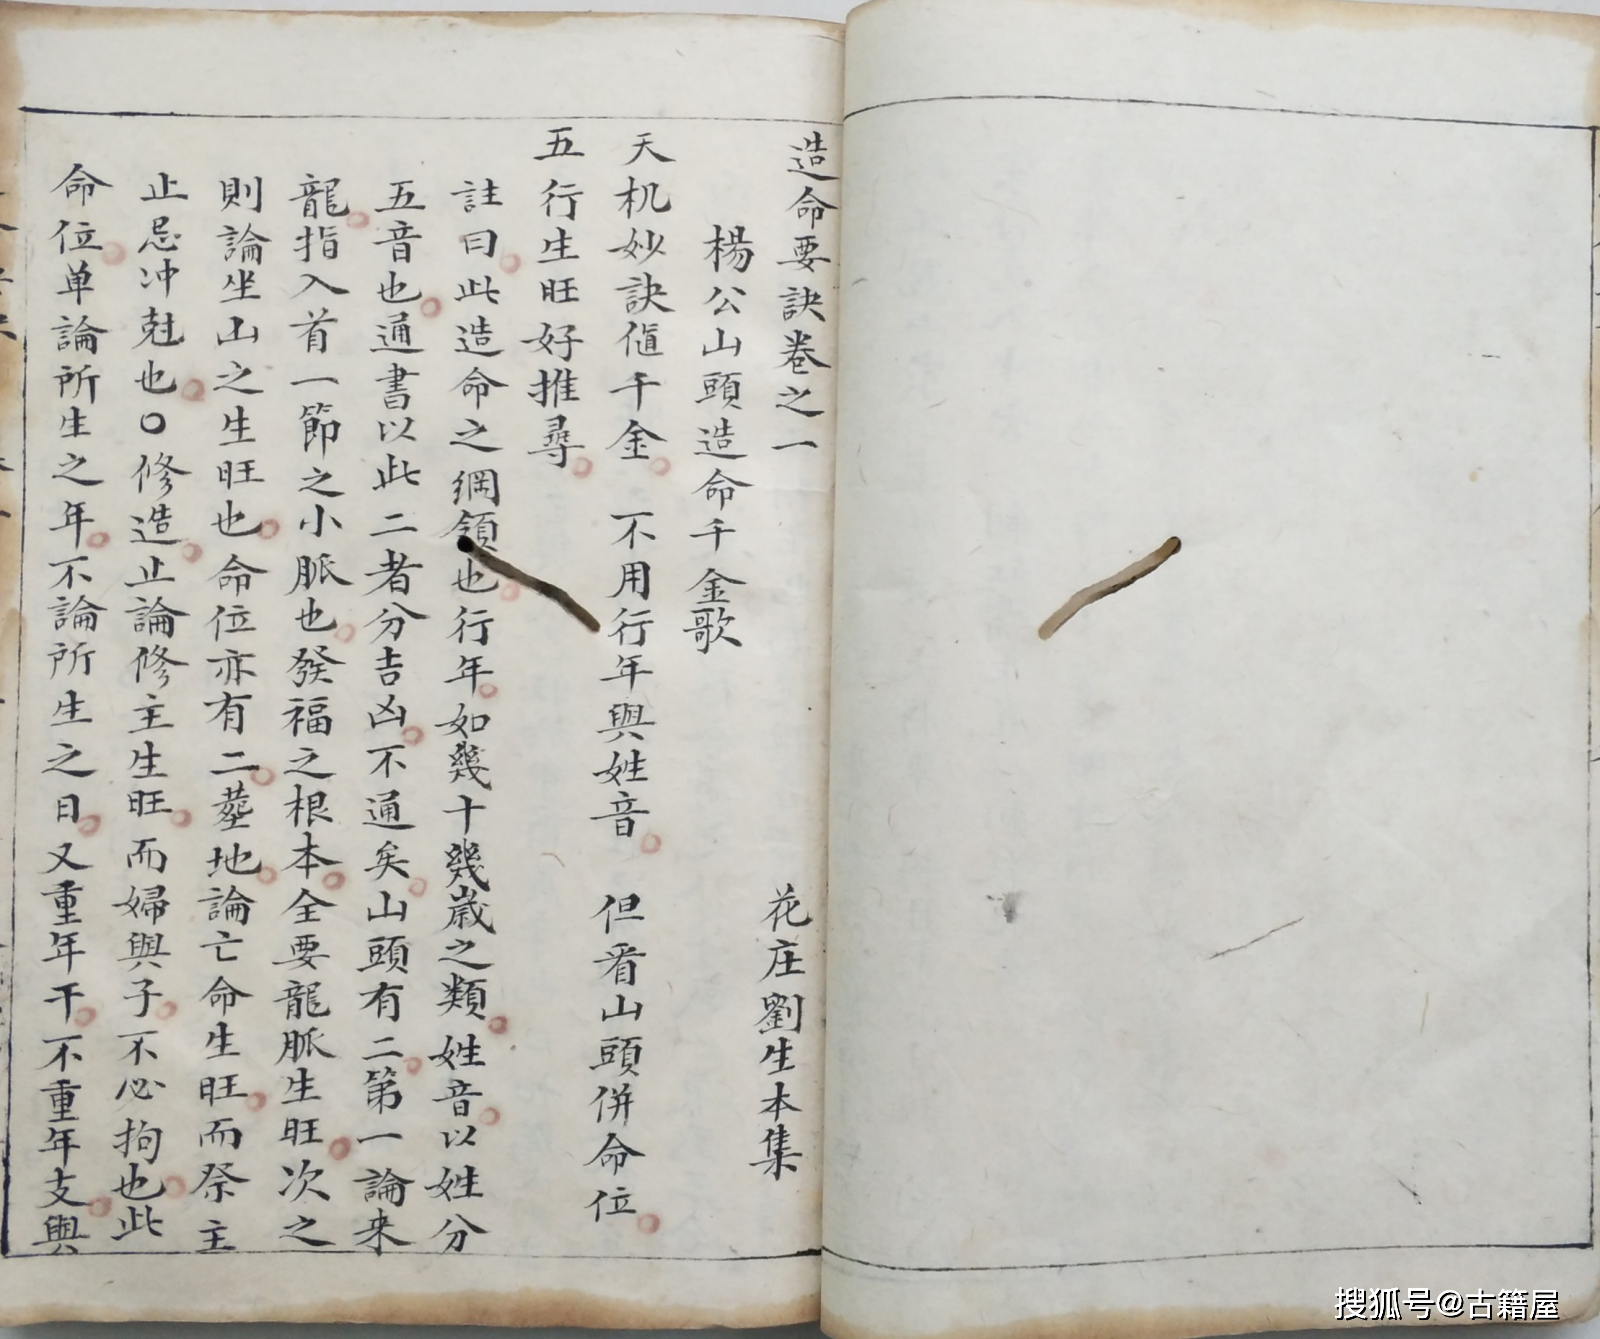 造命要訣卷之一　花庄劉生本集
楊公山頭造命千金歌
天机妙訣值千金　不用行年與姓音　但看山頭併命位
五行生旺好推尋
註曰此造命之綱領也行年如幾十幾歲之類姓音以姓分
五音也通書以此二者分吉凶不通矣山頭有二第一論来
龍指入首一節之小脈也發福之根本全要龍脈生旺次之
則論坐山之生旺也命位亦有二塟地論亡命生旺而祭主
止忌冲尅也〇修造止論修主生旺而婦與子不必拘也此
命位单論所生之年不論所生之日又重年干不重年支與
搜狐号@古籍屋